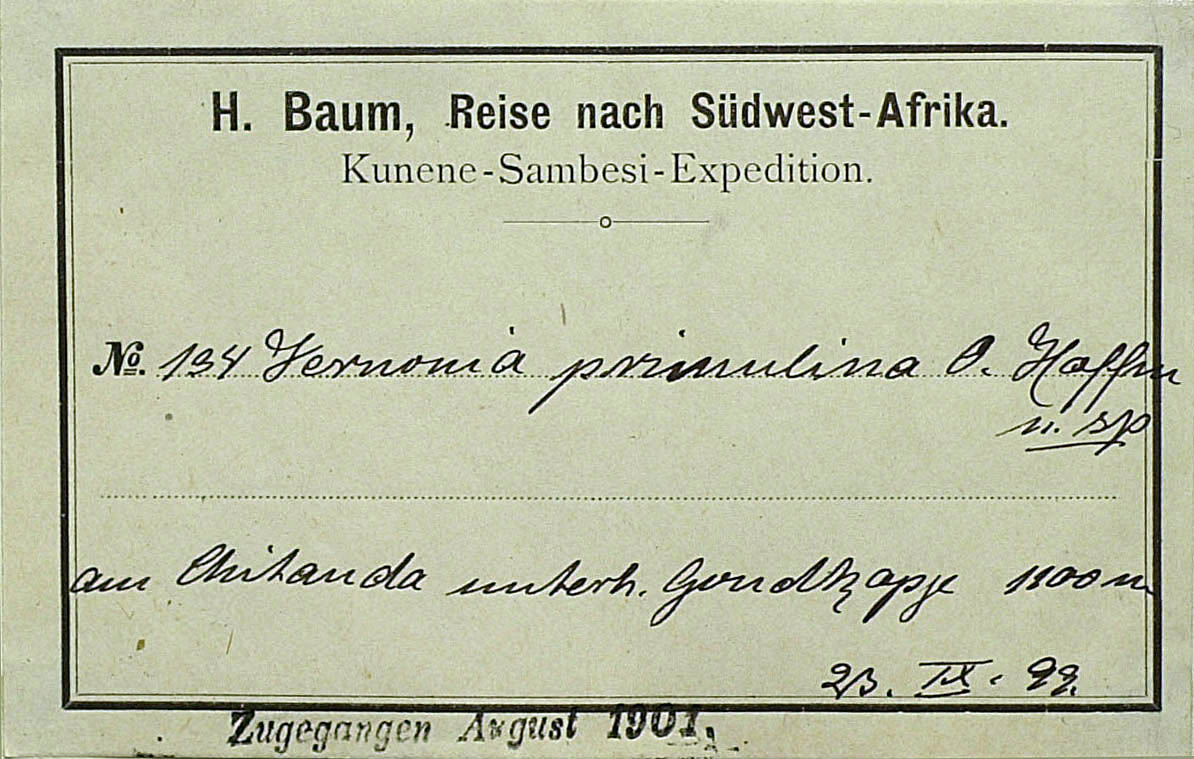 H. Baum, Reise nach Südwest-Afrika.
Kunene-Sambesi-Expedition.
No. 134 Vernonia primulina O. Hoffm
n. sp
am Chitanda unterh. Goudkopje 1100 m
23. IX. 99.
Zugegangen August 1901.